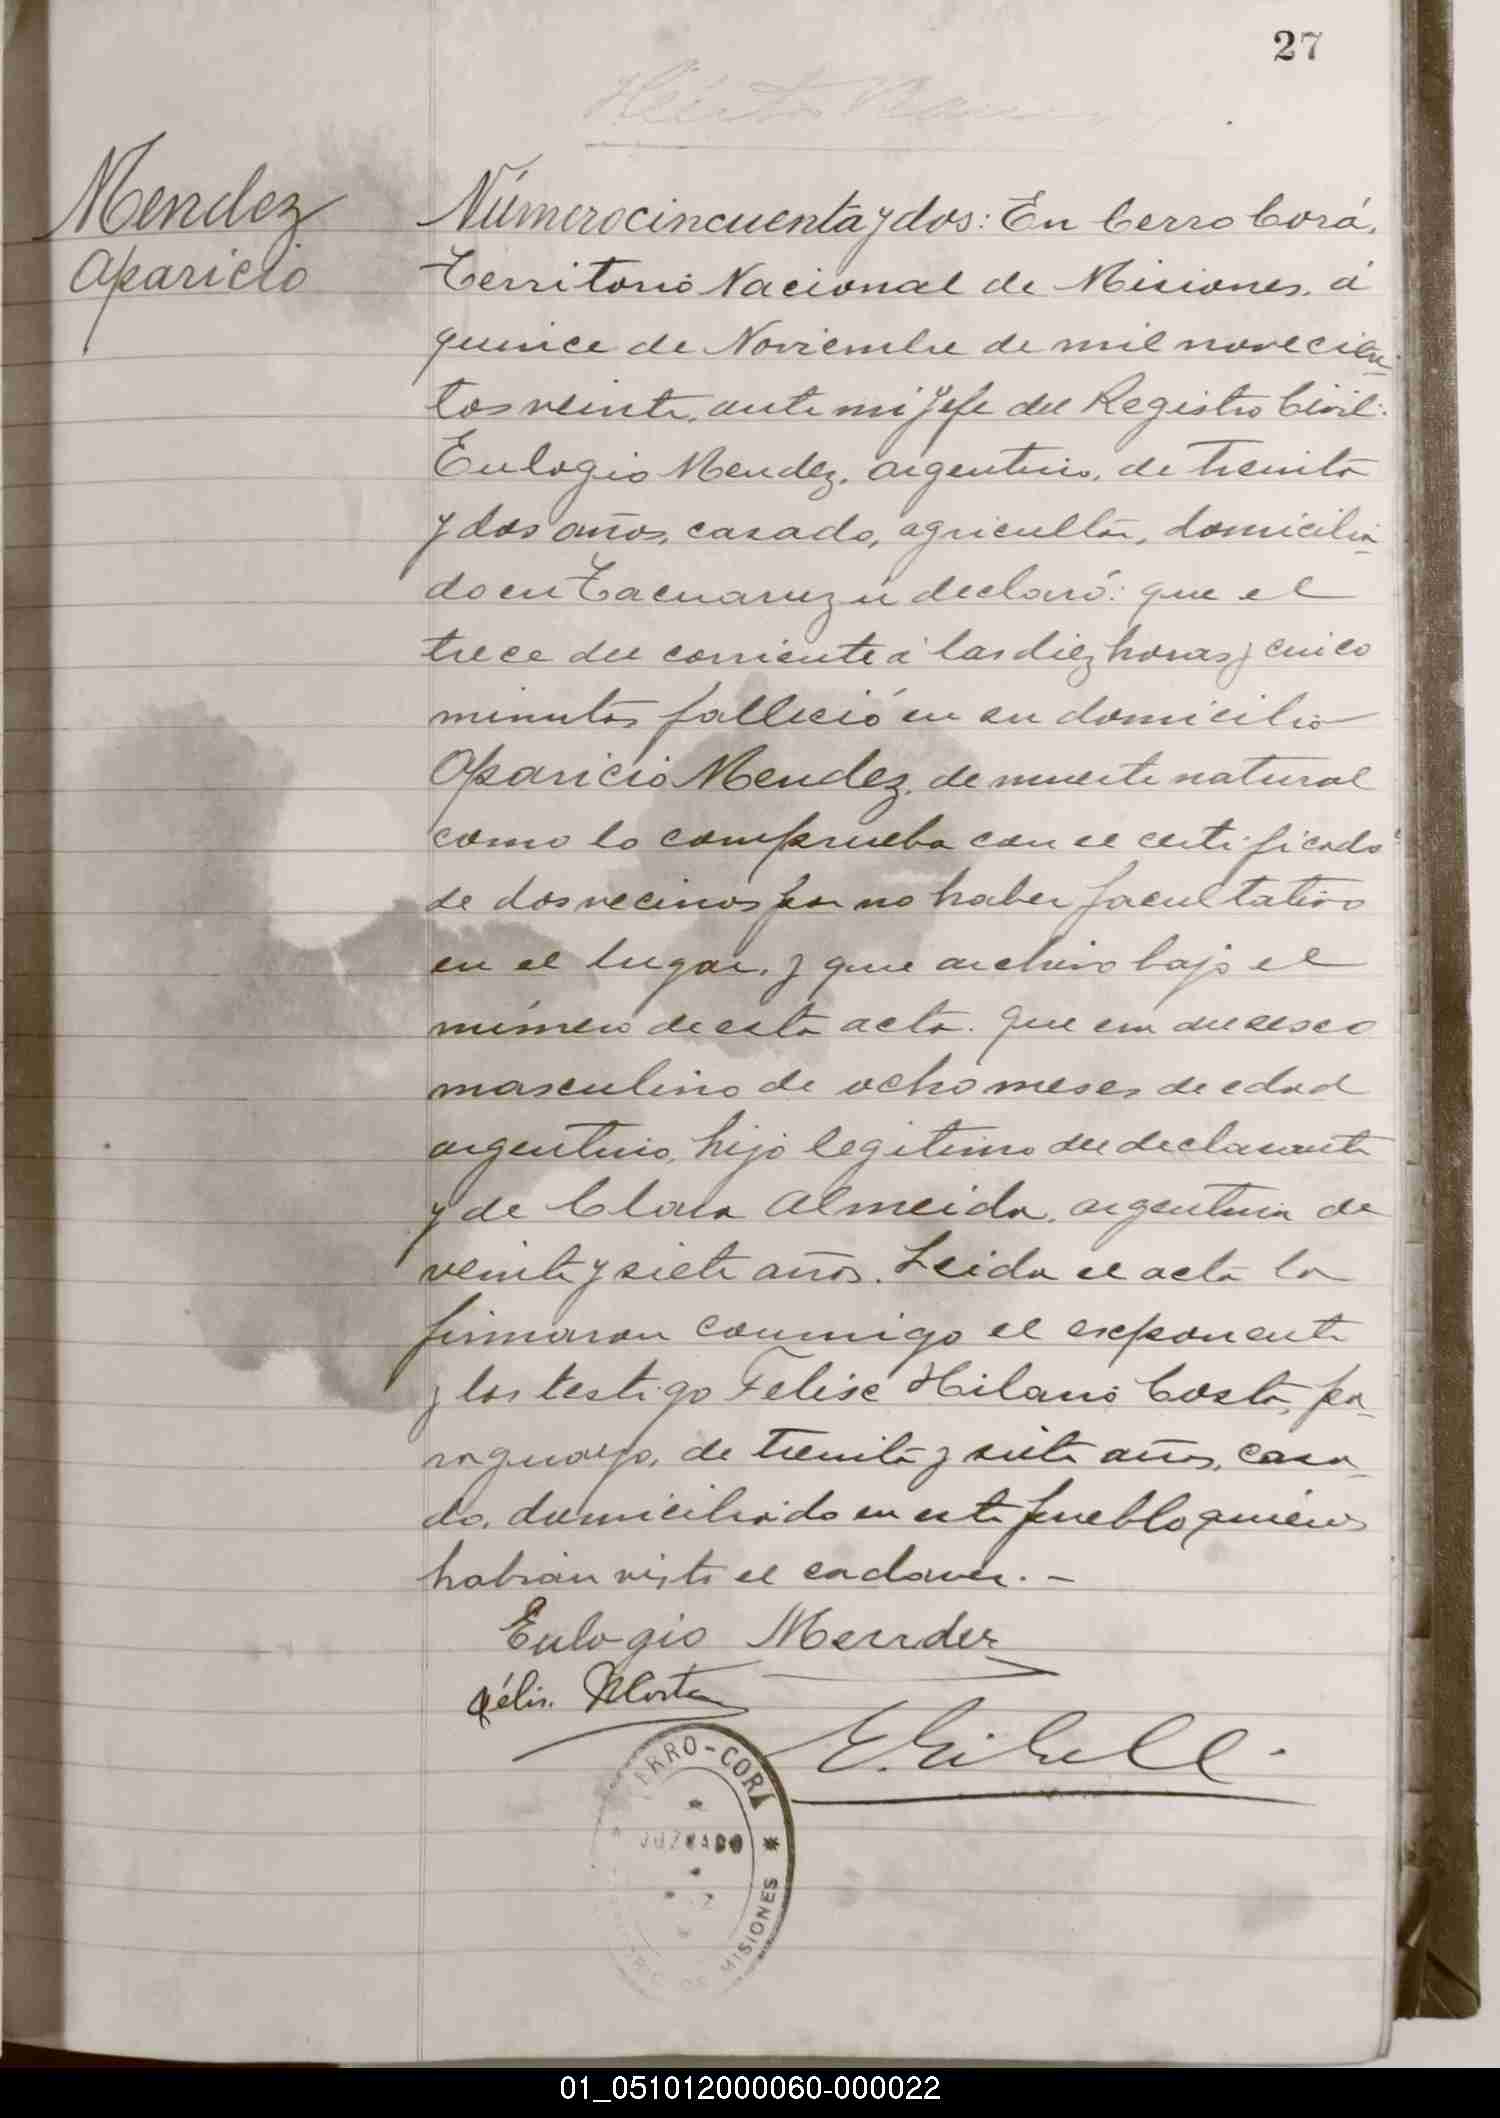 27
Mendez
Aparicio
Número cincuenta y dos: En Cerro Corá,
Territorio Nacional de Misiones, á
quince de Noviembre de mil novecien-
tos veinte, ante mi Jefe del Registro Civil:
Eulogio Mendez, argentino, de treinta
y dos años, casado, agricultor, domicilia-
do en Tacuaruzú declaró: que el
trece del corriente á las diez horas y cinco
minutos falleció en su domicilio
Aparicio Mendez, de muerte natural
como lo comprueba con el certificado
de dos vecinos por no haber facultativo
en el lugar, y que archivo bajo el
número de esta acta. Que era del sexo
masculino de ocho meses de edad
argentino, hijo legitimo del declarante
y de Clara Almeida, argentina de
veinte y siete años. Leida el acta la
firmaron conmigo el exponente
y los testigo Felise Hilario Costa, pa-
raguayo, de treinta y siete años, casa-
do, domiciliado en este pueblo quienes
habian visto el cadaver. -
Eulogio Mendez
Félis
ERRO-CORÁ
JUZGADO
DE MISIONES
01_051012000060-000022